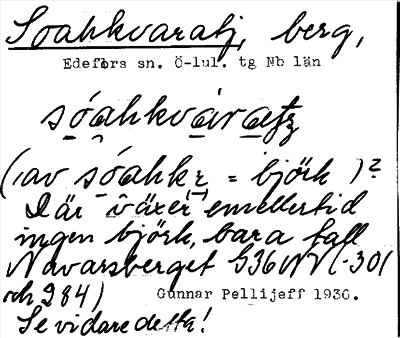 Soahkvaratj, berg,
Edefors sn. Ö-lul. tg Nb län
sóahkvàratz
(av sóahkε = björk )?
Där växer emellertid
ingen björk, bara tall
Navarsberget S36 NV (-301
och 284)
Gunnar Pellijeff 1936.
Se vidare detta!